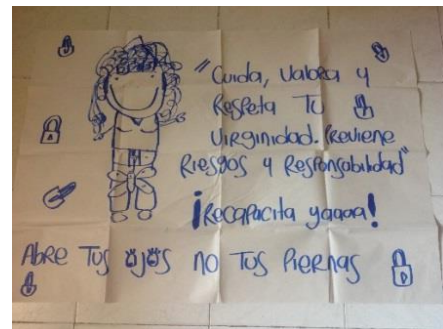 "Cuida, Valora y
Respeta Tu
Virginidad. Previene
Riesgos y Responsabilidad"
¡Recapacita yaaaa!
Abre Tus ojos no Tus Piernas